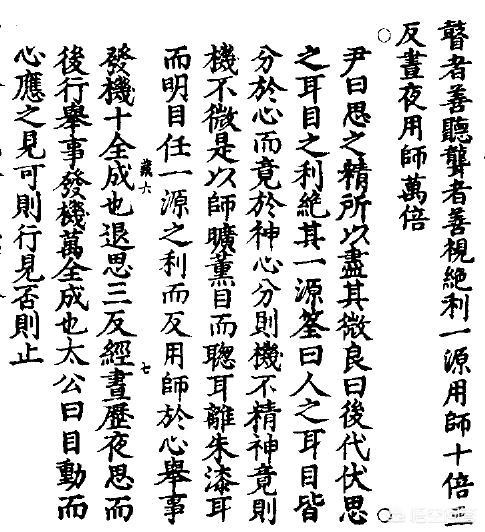 瞽者善聽聾者善視絶利一源用師十倍三
反晝夜用師萬倍
尹曰思之精所以盡其微良曰後代伏思
之耳目之利絶其一源筌曰人之耳目皆
分於心而竟於神心分則機不精神竟則
機不微是以師曠薰目而聰耳離朱漆耳
而明目任一源之利而反用師於心舉事
歲六 七
發機十全成也退思三反經晝歷夜思而
後行舉事發機萬全成也太公曰目動而
心應之見可則行見否則止